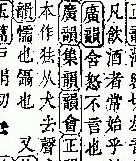 凡飲酒者常始乎
廣韻含怒不言也
廣韻集韻韻會正
本作独从犬去聲
韻懦也弱也又